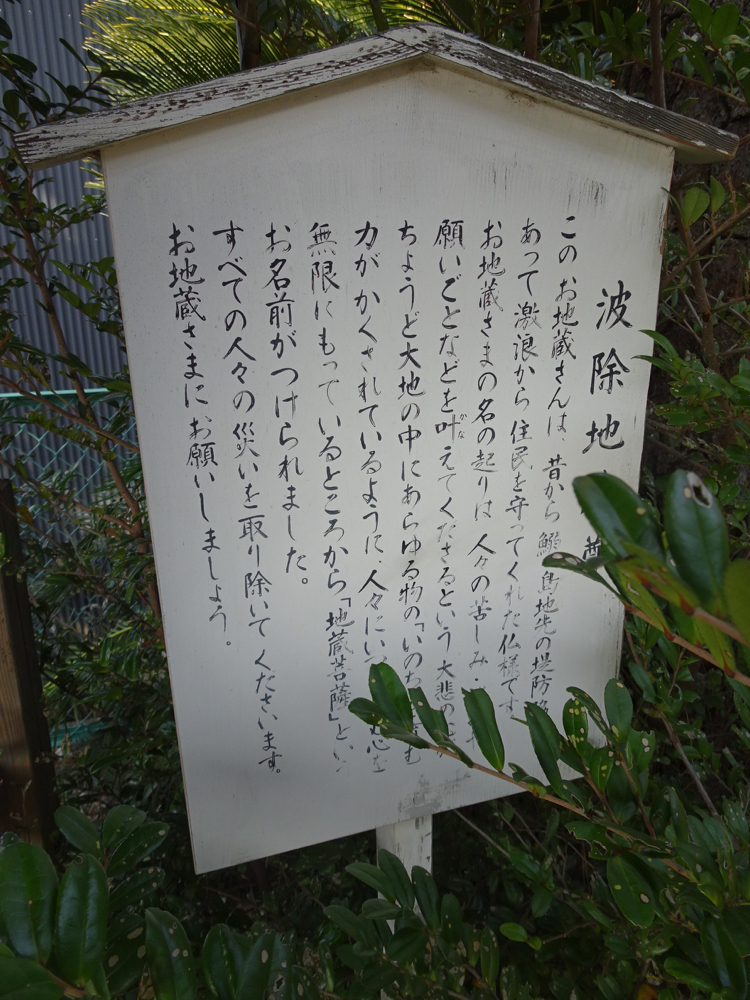 波除地
このお地蔵さんは、昔から鰯島地先の堤防
あって激浪から住民を守ってくれた仏様です
お地蔵さまの名の起りは人々の苦しみ・
願いごとなどを叶えてくださるという大悲の
ちょうど大地の中にあらゆる物の「いのち
力がかくされているように、人々に
無限にもっているところから「地蔵菩薩」とい
お名前がつけられました。
すべての人々の災いを取り除いてくださいます。
お地蔵さまにお願いしましょう。